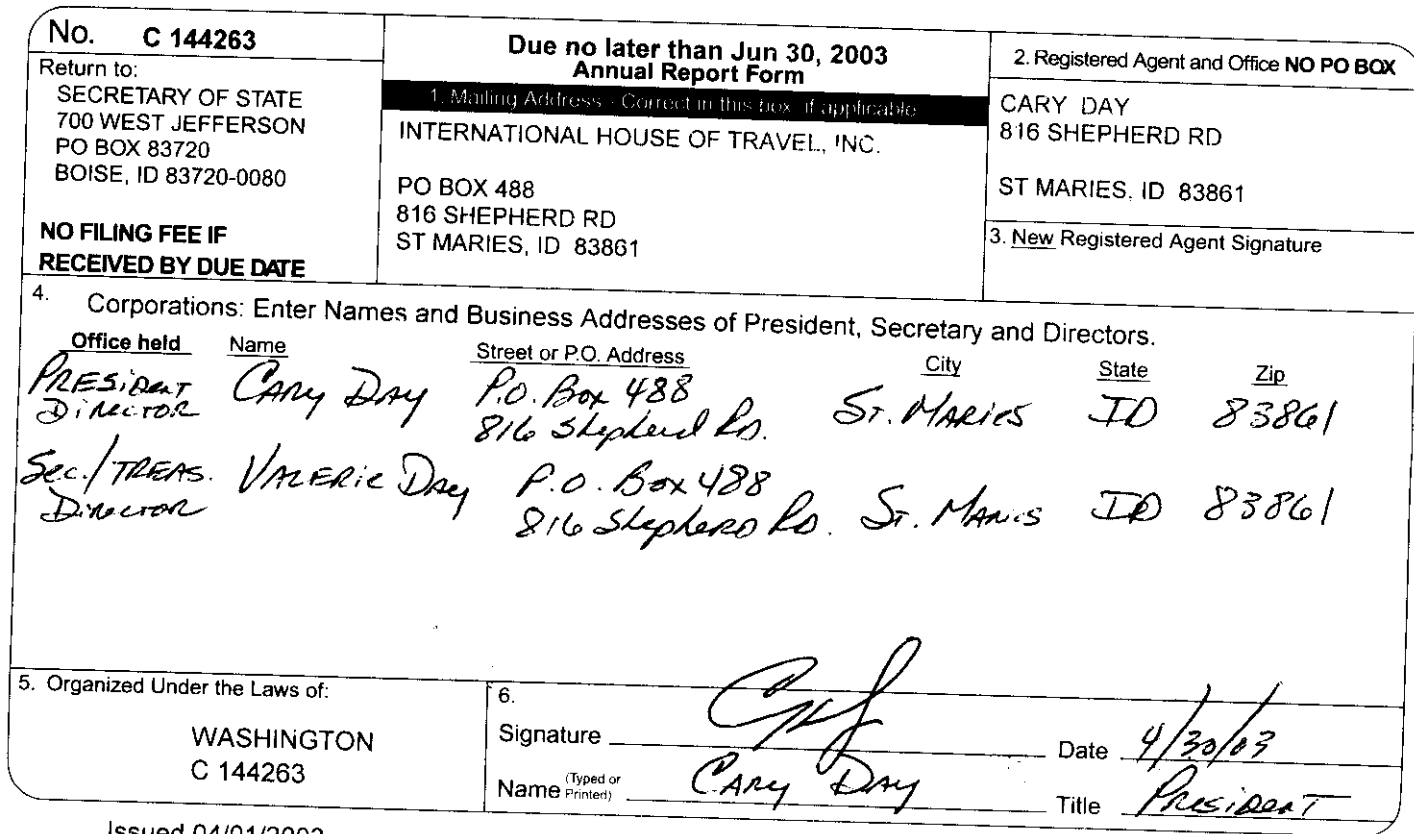 No. C 144263
Return to:
SECRETARY OF STATE
700 WEST JEFFERSON
PO BOX 83720
BOISE, ID 83720-0080
NO FILING FEE IF
RECEIVED BY DUE DATE
Due no later than Jun 30, 2003
Annual Report Form
1. Mailing Address - Correct in this box, if applicable
INTERNATIONAL HOUSE OF TRAVEL, INC.
PO BOX 488
816 SHEPHERD RD
ST MARIES, ID 83861
2. Registered Agent and Office NO PO BOX
CARY DAY
816 SHEPHERD RD
ST MARIES, ID 83861
3. New Registered Agent Signature
4. Corporations: Enter Names and Business Addresses of President, Secretary and Directors.
Office held Name Street or P.O. Address City State Zip
PRESIDENT CARY DAY P.O. Box 488 ST. MARIES ID 83861
DIRECTOR 816 Shepherd RD.
Sec./TREAS. VALERIE DAY P.O. Box 488
DIRECTOR 816 Shepherd RD. ST. MARIES ID 83861
5. Organized Under the Laws of:
WASHINGTON
C 144263
6.
Signature Date 4/30/03
Name (Typed or Printed) CARY DAY Title PRESIDENT
Issued 04/01/2003